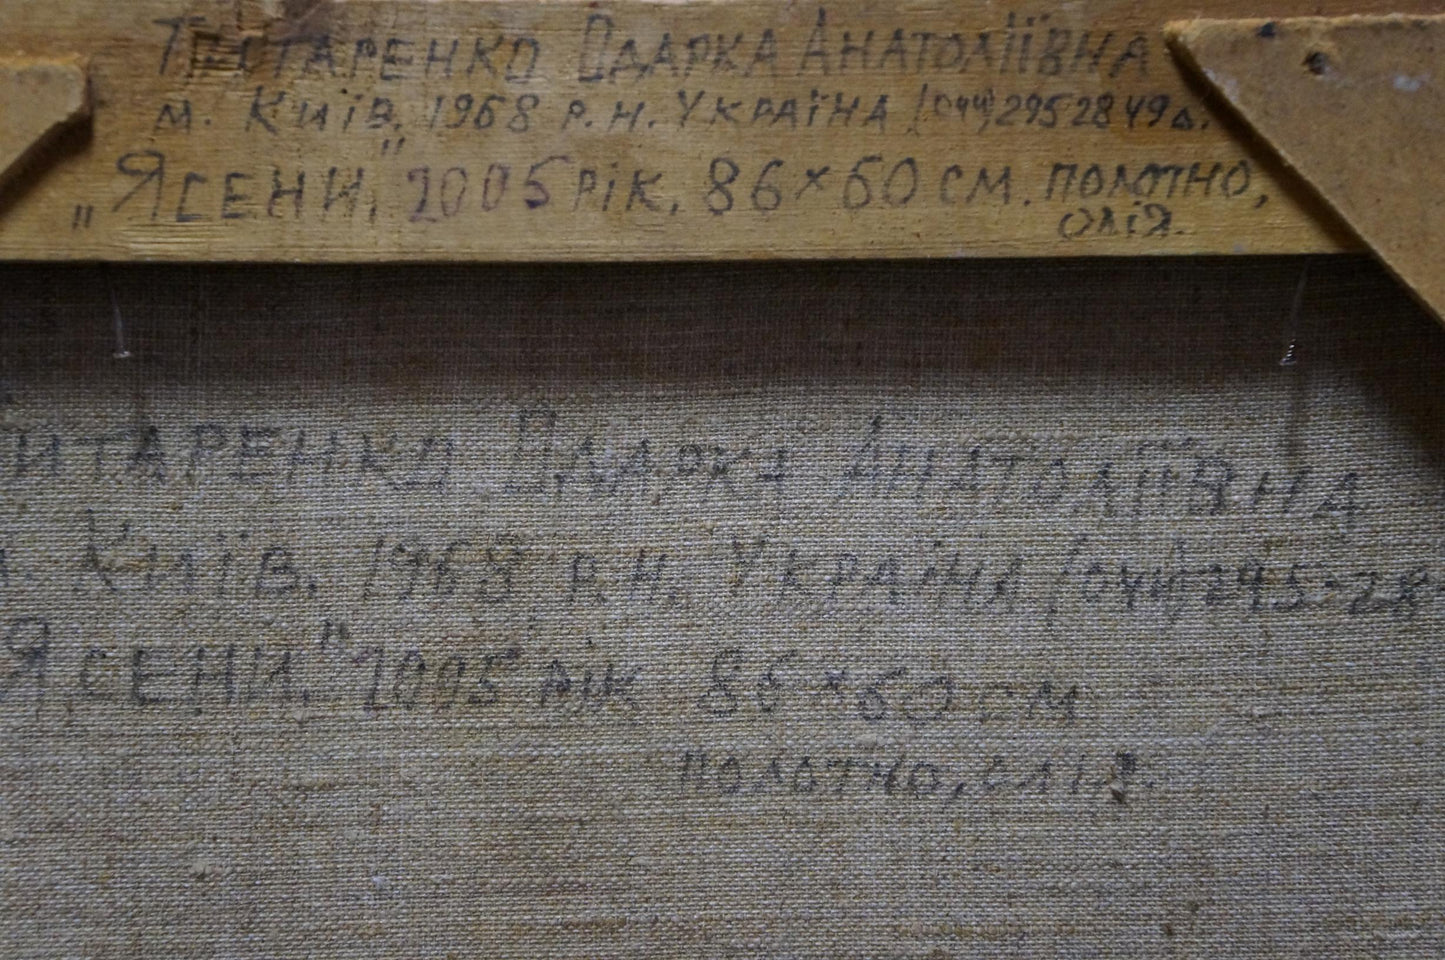 Титаренко Одарка Анатоліївна
м. Київ, 1968 р.н. Україна (044) 295 28 49 д.
„Ясени," 2005 рік. 86×60 см. полотно,
олія.
итаренко Одарка Анатоліївна
. Київ. 1968 р.н. Україна (044) 295-28
Ясени." 2005 рік 86×60 см
полотно, олія.